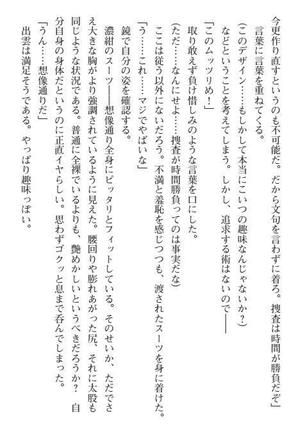 今更作り直すというのも不可能だ。だから文句を言わずに着ろ。捜査は時間が勝負だぞ」
言葉に言葉を重ねてくる。
（このデザイン……もしかして本当にこいつの趣味なんじゃないか？）
などということを考えてしまう。しかし、追求する術はないので――
「このムッツリめ！」
取り敢えず負け惜しみのような言葉を口にした。
（ただ……なんにせよ……捜査が時間勝負ってのは事実だな）
ここは従う以外にないだろう。不満と羞恥を感じつつも、渡されたスーツを身に着けた。
「う……これ……マジでやばいな」
鏡で自分の姿を確認する。
濃紺のスーツ――想像通り全身にピッタリとフィットしている。そのせいか、ただでさ
え大きな胸がより強調されているように見えた。腰回りや膨れあがった尻、それに太股も
同じような状況である。普通に全裸でいるよりも、艶めかしいというべきだろうか？　自
分自身の身体だというのに正直イヤらしい。思わずゴクッと息まで呑んでしまった。
「うん……想像通りだ」
出雲は満足そうである。やっぱり趣味っぽい。